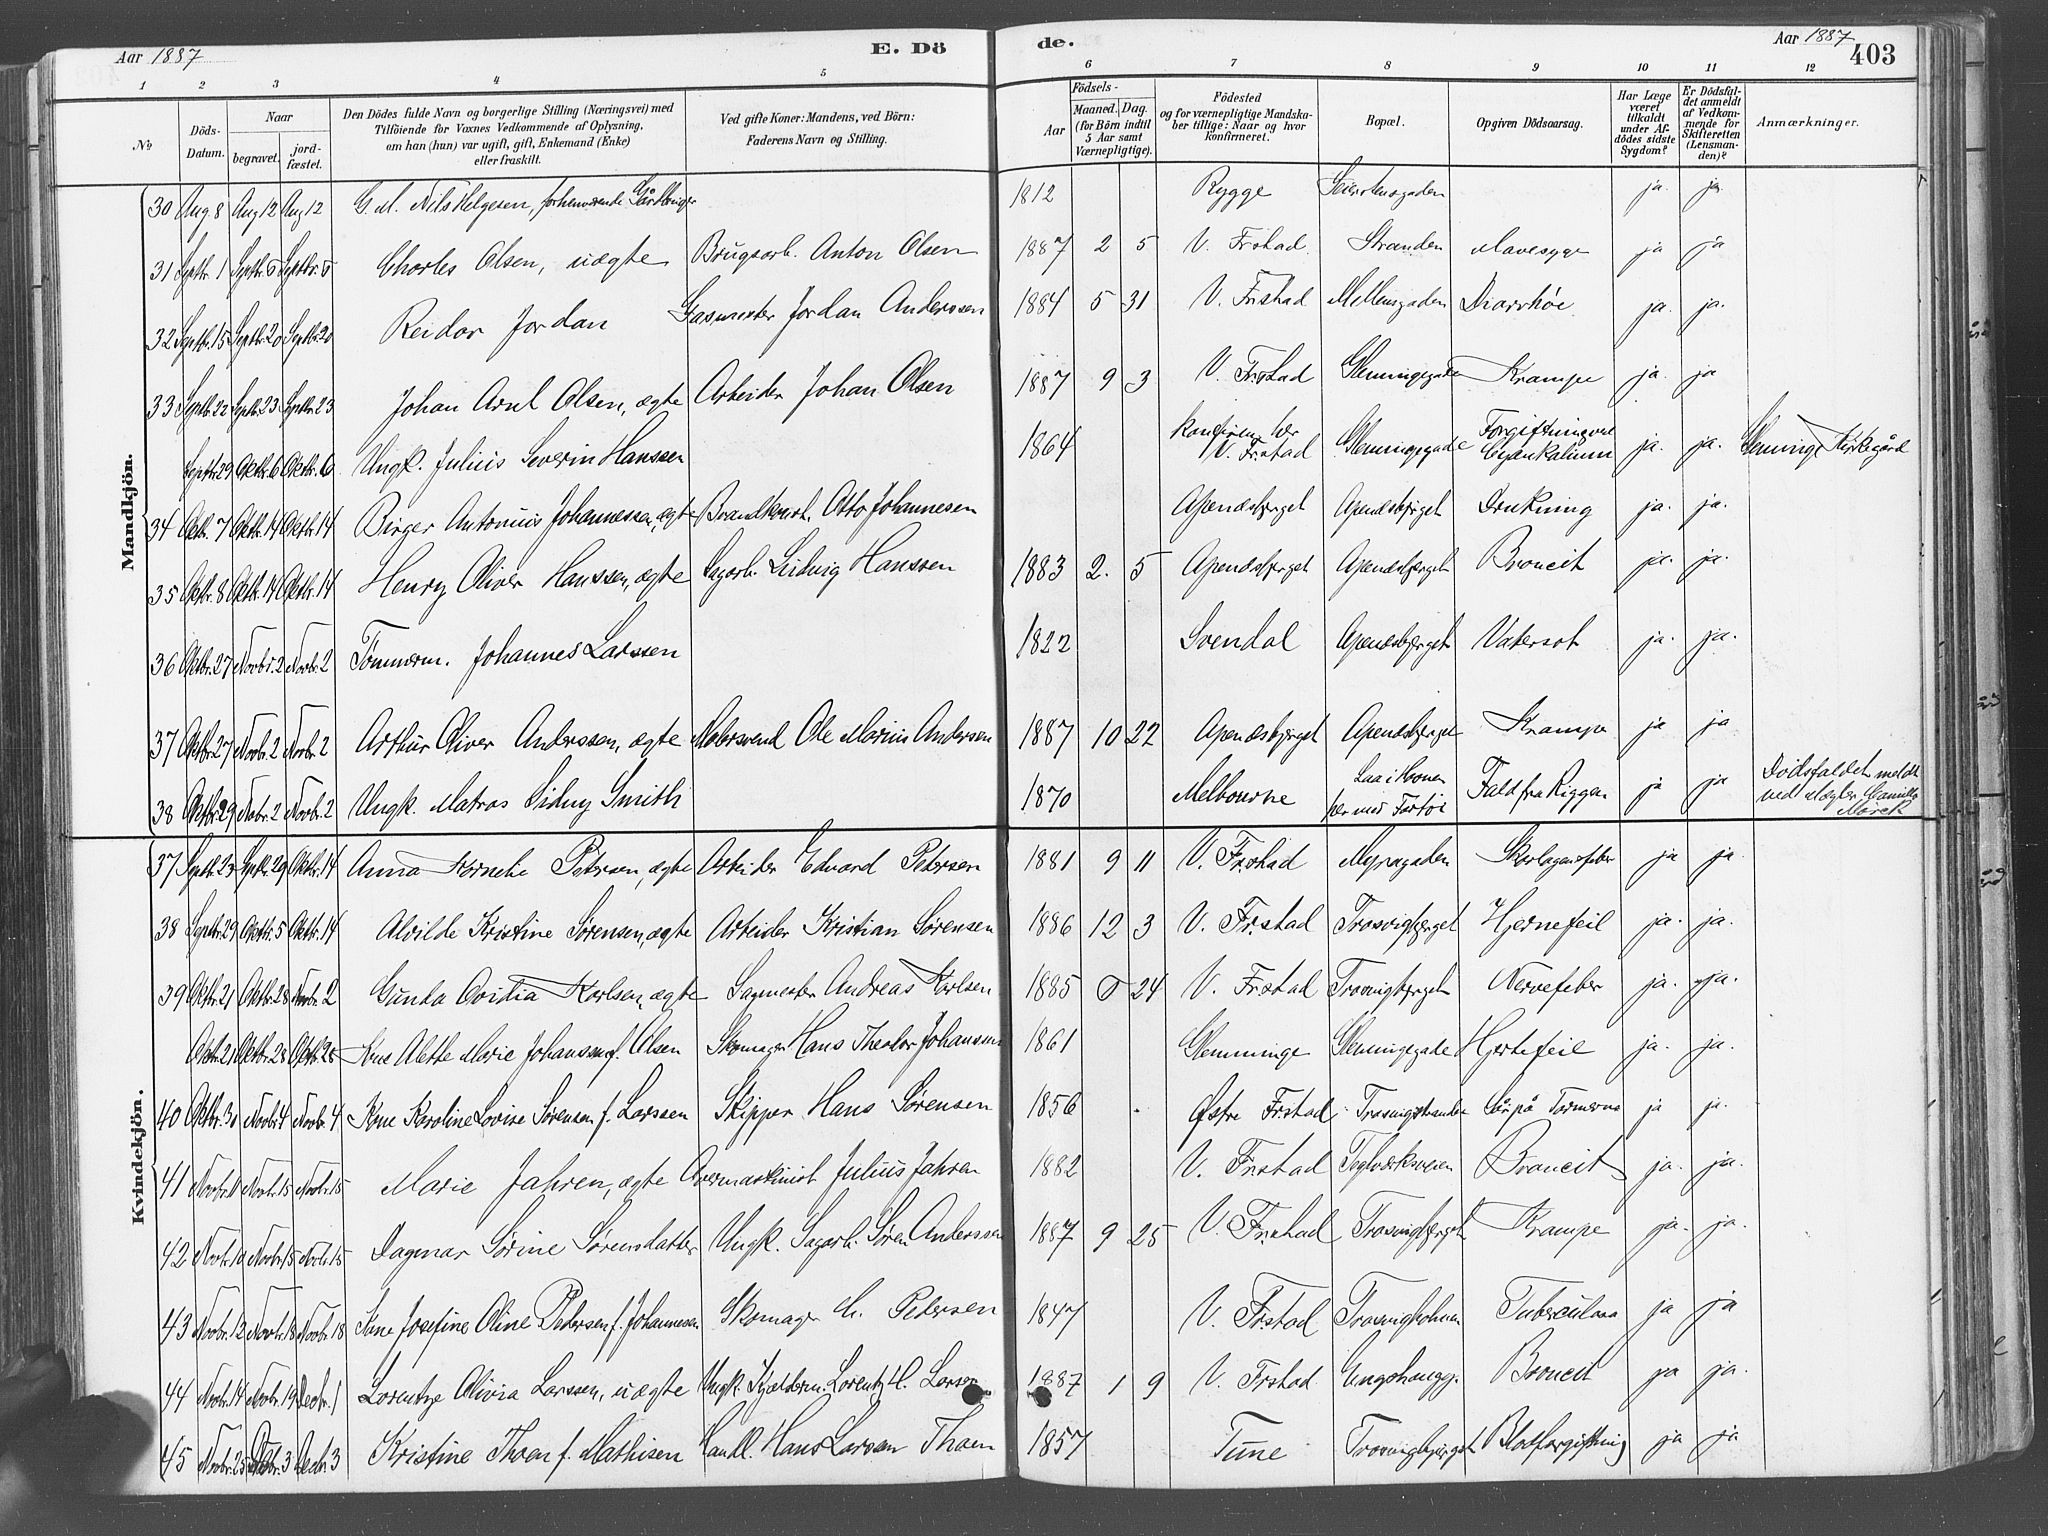 Aar 1887 E. Dö
1 2 3 4 5
No Döds-Datum. Naar begravet. jordfæstet. Den Dödes fulde Navn og borgerlige Stilling (Næringsvei) med Tilföiende for Voxnes Vedkommende af Oplysning, om han (hun) var ugift, gift, Enkemand (Enke) eller fraskilt. Ved gifte Koner: Mandens, ved Börn: Faderens Navn og Stilling.
de. Aar 1887 403
6 7 8 9 10 11 12
Födsels- Aar Maaned. Dag. (for Börn indtil 5 Aar samt Værnepligtige). Födested og for værnepligtige Mandskaber tillige: Naar og hvor konfirmeret. Bopæl. Opgiven Dödsaarsag. Har Læge været tilkaldt under Afdödes sidste Sygdom? Er Dödsfaldet anmeldt af Vedkommende for Skifteretten (Lensmanden)? Anmærkninger.
Mandkjön.
30 Aug 8 Aug 12 Aug 12 G. M. Nils Helgesen, forhenværende 1812 Rygge ja ja
31 Septbr. 1 Septbr. 5 Septbr. 5 Charles Olsen, uægte Brugsarb. Anton Olsen 1887 2 5 V. Frstad Stranden Mavesyge ja ja
32 Septbr. 15 Septbr. 20 Septbr. 20 Reidar Jordan Gasmester Jordan Anderssen 1884 5 31 V. Frstad Mellemgaden Diarrhöe ja. ja.
33 Septbr. 22 Septbr. 23 Septbr. 23 Johan Arnt Olsen, ægte Arbeider Johan Olsen 1887 9 3 V. Frstad Glemmingegade Krampe ja. ja
Septbr. 29 Oktbr. 6 Oktbr. 6 Ungk. Julius Severin Hanssen 1864 konfirm. her V. Frstad Glemmingegade Forgiftning ved Cyankalium ja. ja. Glemminge Kirkegård
34 Oktbr. 7 Oktbr. 14 Oktbr. 14 Birger Antonius Johannessen, ægte Brandkonst. Otto Johannesen Apenæsbjerget Apenæsbjerget Drukning ja. ja.
35 Oktbr. 8 Oktbr. 14 Oktbr. 14 Henry Oliver Hanssen, ægte Sagarb. Ludvig Hanssen 1883 2. 5 Apenæsbjerget Apenæsbjerget Broncit ja. ja.
36 Oktbr. 27 Novbr. 2 Novbr. 2 Tömmerm. Johannes Larssen 1822 Svendal Apenæsbjerget Vatersot ja. ja.
37 Oktbr. 27 Novbr. 2 Novbr. 2 Arthur Oliver Anderssen, ægte Malersvend Ole Marius Andersen 1887 10 22 Apenæsbjerget Apenæsbjerget Krampe ja ja
38 Oktbr. 29 Novbr. 2 Novbr. 2 Ungk. Matros Sidny Smith 1870 Melbourne Laa i Havnen her med Fartöi Fald fra Riggen ja ja Dödsfaldet meldt ved Mægler Camillo
Kvindekjön.
37 Septbr. 23 Septbr. 29 Oktbr. 14 Anna Kornelie Petersen, ægte Arbeider Edvard Petersen 1881 9 11 V. Frstad Myragaden Skarlagensfeber ja ja
38 Septbr. 29 Oktbr. 5 Oktbr. 14 Alvilde Kristine Sørensen, ægte Arbeider Kristian Sørensen 1886 12 3 V. Frstad Trosvigbjerget Hjernefeil ja. ja.
39 Oktbr. 21 Oktbr. 28 Novbr. 2 Gunda Ovidia Karlsen, ægte Sagmester Andreas Karlsen 1885 24 V. Frstad Trosvigbjerget Nervefeber ja. ja.
Oktbr. 21 Oktbr. 28 Oktbr. 28 Kone Alette Marie Johanssen f. Olsen Skomager Hans Theodor Johansen 1861 Glemminge Glemmingegade Hjertefeil ja. ja.
40 Oktbr. 30 Novbr. 4 Novbr. 4 Kone Karoline Lovise Sørensen f. Larssen Skipper Hans Sørensen 1856 Østre Frstad Trosvigstranden Sår på Tarmerne ja ja.
41 Novbr. 15 Novbr. 15 Marie Jahren, ægte Overmaskinist Julius Jahren 1882 V. Frstad Teglværksveien Broncit ja. ja.
42 Novbr. 10 Novbr. 15 Novbr. 15 Dagmar Sørine Sørensdatter Ungk. Sagarb. Søren Anderssen 1887 9 25 V. Frstad Trosvigbjerget Krampe ja. ja.
43 Novbr. 12 Novbr. 18 Novbr. 18 Kone Josefine Oline Petersen f. Johannesen Skomager Petersen 1847 V. Frstad Trosvigholmen Tuberculose ja ja
44 Novbr. 14 Novbr. 19 Decbr. 1 Lorentze Olivia Larssen, uægte Ungk. Lorentz H. Larsen 1887 1 9 V. Frstad ja ja.
45 Novbr. 25 Decbr. 3 Kristine Thoen f. Mathisen Handl. Hans Larsen Thoen 1857 Tune Trosvigbjerget Blodforgiftning ja ja